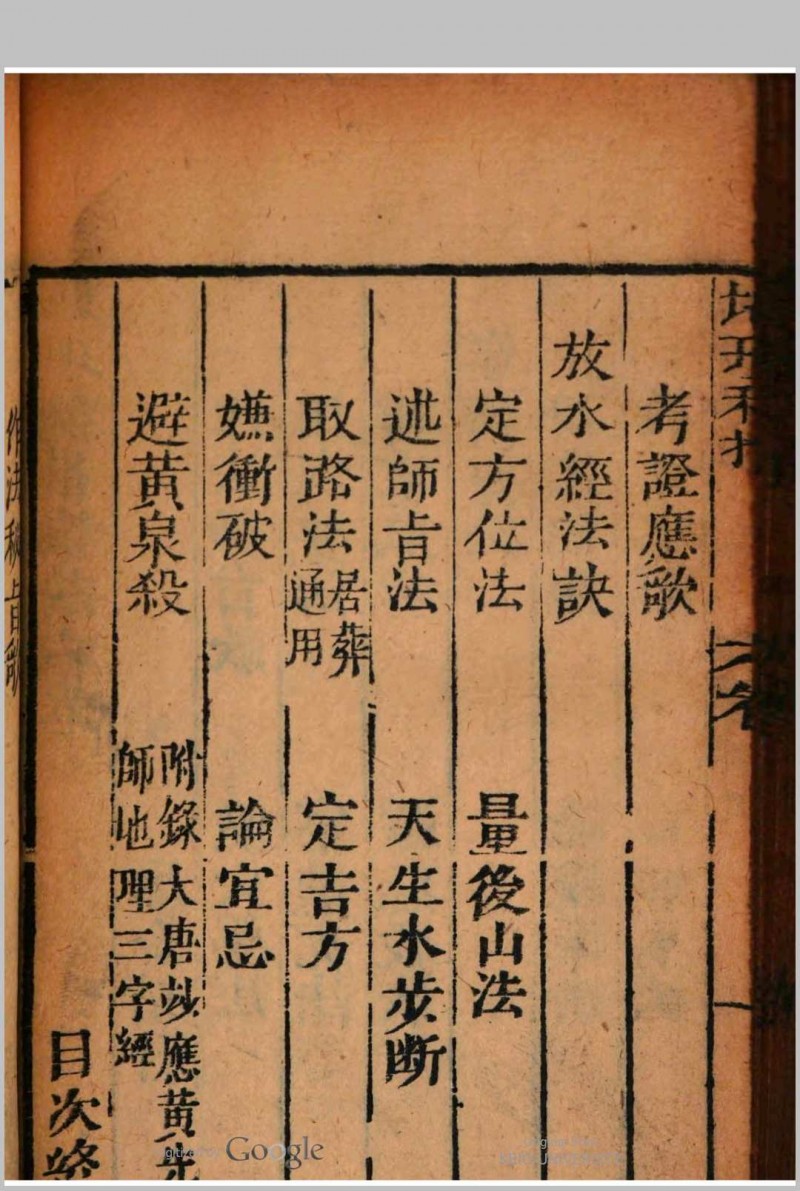 考證應歌
放水經法訣
定方位法　量後山法
述師旨法　天生水步断
取路法　居葬通用　定吉方
嫌衝破　論宜忌
避黃泉殺　附錄大唐玅應黃先師地理三字經
目次終
作法秘旨歌
Google